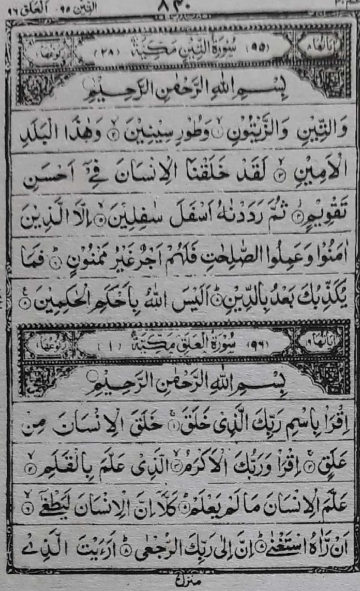 التین ۹۵ العلق ۹۶
۸۴۰
(۹۵) سُوْرَةُ التِّيْنِ مَكِّيَّةٌ (۲۸)
بِسْمِ اللهِ الرَّحْمٰنِ الرَّحِيْمِ
وَالتِّيْنِ وَالزَّيْتُوْنِ ۱ وَطُوْرِ سِيْنِيْنَ ۲ وَهٰذَا الْبَلَدِ
الْاَمِيْنِ ۳ لَقَدْ خَلَقْنَا الْاِنْسَانَ فِيْۤ اَحْسَنِ
تَقْوِيْمٍ ۴ ثُمَّ رَدَدْنٰهُ اَسْفَلَ سٰفِلِيْنَ ۵ اِلَّا الَّذِيْنَ
اٰمَنُوْا وَعَمِلُوا الصّٰلِحٰتِ فَلَهُمْ اَجْرٌ غَيْرُ مَمْنُوْنٍ ۶ فَمَا
يُكَذِّبُكَ بَعْدُ بِالدِّيْنِ ۷ اَلَيْسَ اللهُ بِاَحْكَمِ الْحٰكِمِيْنَ ۸
(۹۶) سُوْرَةُ الْعَلَقِ مَكِّيَّةٌ (۱)
بِسْمِ اللهِ الرَّحْمٰنِ الرَّحِيْمِ
اِقْرَاْ بِاسْمِ رَبِّكَ الَّذِيْ خَلَقَ ۱ خَلَقَ الْاِنْسَانَ مِنْ
عَلَقٍ ۲ اِقْرَاْ وَرَبُّكَ الْاَكْرَمُ ۳ الَّذِيْ عَلَّمَ بِالْقَلَمِ ۴
عَلَّمَ الْاِنْسَانَ مَا لَمْ يَعْلَمْ ۵ كَلَّاۤ اِنَّ الْاِنْسَانَ لَيَطْغٰۤى ۶
اَنْ رَّاٰهُ اسْتَغْنٰى ۷ اِنَّ اِلٰى رَبِّكَ الرُّجْعٰى ۸ اَرَءَيْتَ الَّذِيْ
منزل